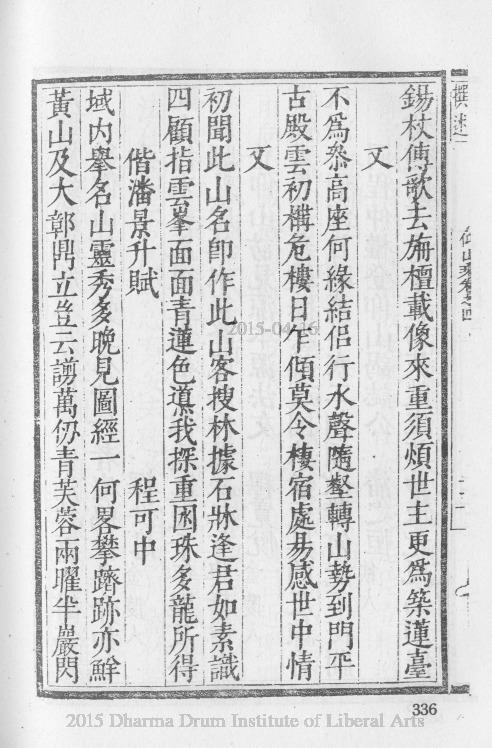 錫杖傳歌去旃檀載像來重須煩世主更爲築蓮臺
又
不爲叅高座何緣結侶行水聲隨壑轉山勢到門平
古殿雲初構危樓日乍傾莫令棲宿處易感世中情
又
初聞此山名卽作此山客搜林據石牀逢君如素識
四顧指雲峯面面青蓮色導我探重困珠多龍所得
偕潘景升賦 程可中
域内舉名山靈秀多晚見圖經一何畧攀躋跡亦鮮
黃山及大鄣鼎立豈云謭萬仞青芙蓉兩曜半嚴閃
撰述
仰山乘卷之四
2015-04-16
336
2015 Dharma Drum Institute of Liberal Arts